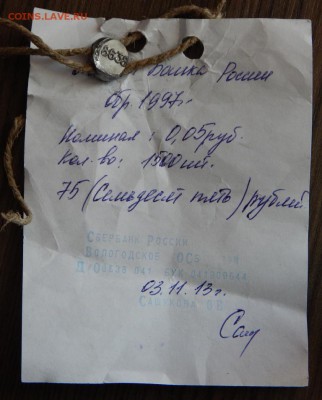 COINS.LAVE.RU
Банка России
обр. 1997г.
Номинал: 0,05 руб.
Кол-во: 1500 шт.
75 (Семьдесят пять) рублей
Сбербанк России
Вологодское ОСБ
03.11.13г.